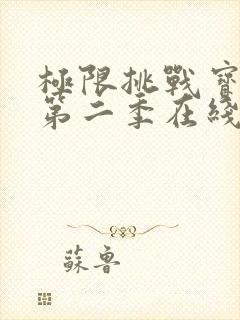 極限挑戰寳
第二季在綫
蘇魯